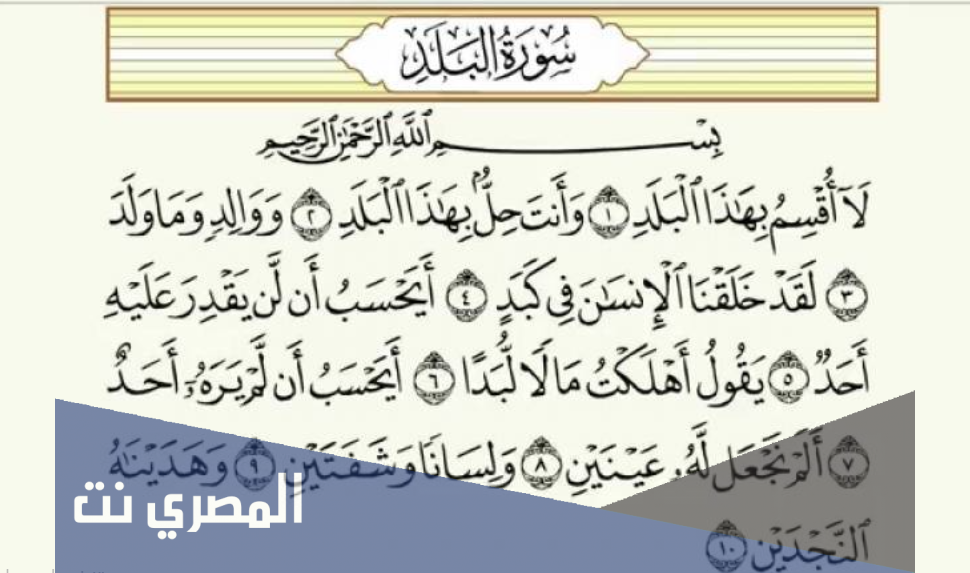 سُورَةُ البَلَدِ
بِسْمِ ٱللَّهِ ٱلرَّحْمَٰنِ ٱلرَّحِيمِ
لَآ أُقْسِمُ بِهَٰذَا ٱلْبَلَدِ ١ وَأَنتَ حِلٌّۢ بِهَٰذَا ٱلْبَلَدِ ٢ وَوَالِدٍ وَمَا وَلَدَ
٣ لَقَدْ خَلَقْنَا ٱلْإِنسَٰنَ فِى كَبَدٍ ٤ أَيَحْسَبُ أَن لَّن يَقْدِرَ عَلَيْهِ
أَحَدٌ ٥ يَقُولُ أَهْلَكْتُ مَالًا لُّبَدًا ٦ أَيَحْسَبُ أَن لَّمْ يَرَهُۥٓ أَحَدٌ
٧ أَلَمْ نَجْعَل لَّهُۥ عَيْنَيْنِ ٨ وَلِسَانًا وَشَفَتَيْنِ ٩ وَهَدَيْنَٰهُ
ٱلنَّجْدَيْنِ ١٠
المصري نت